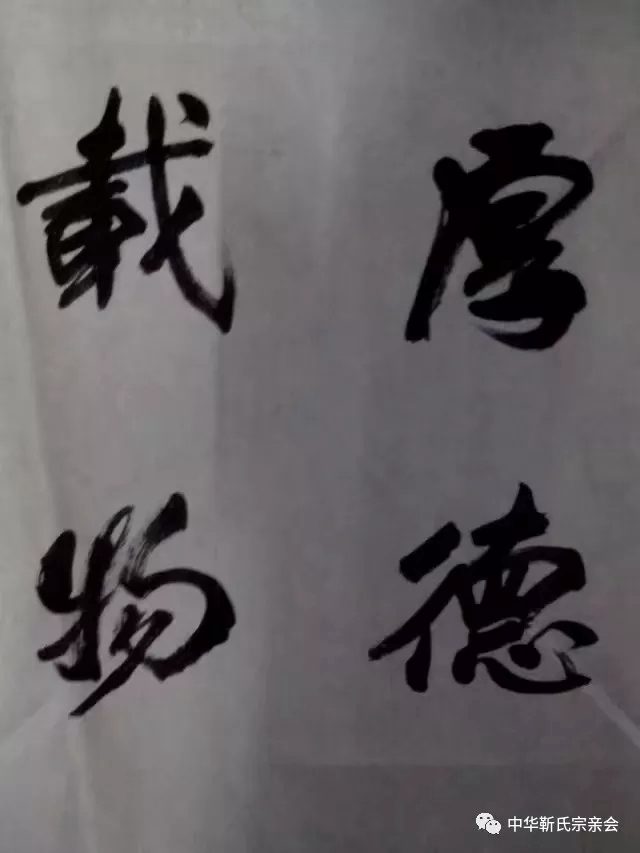 厚德
載物
中华靳氏宗亲会